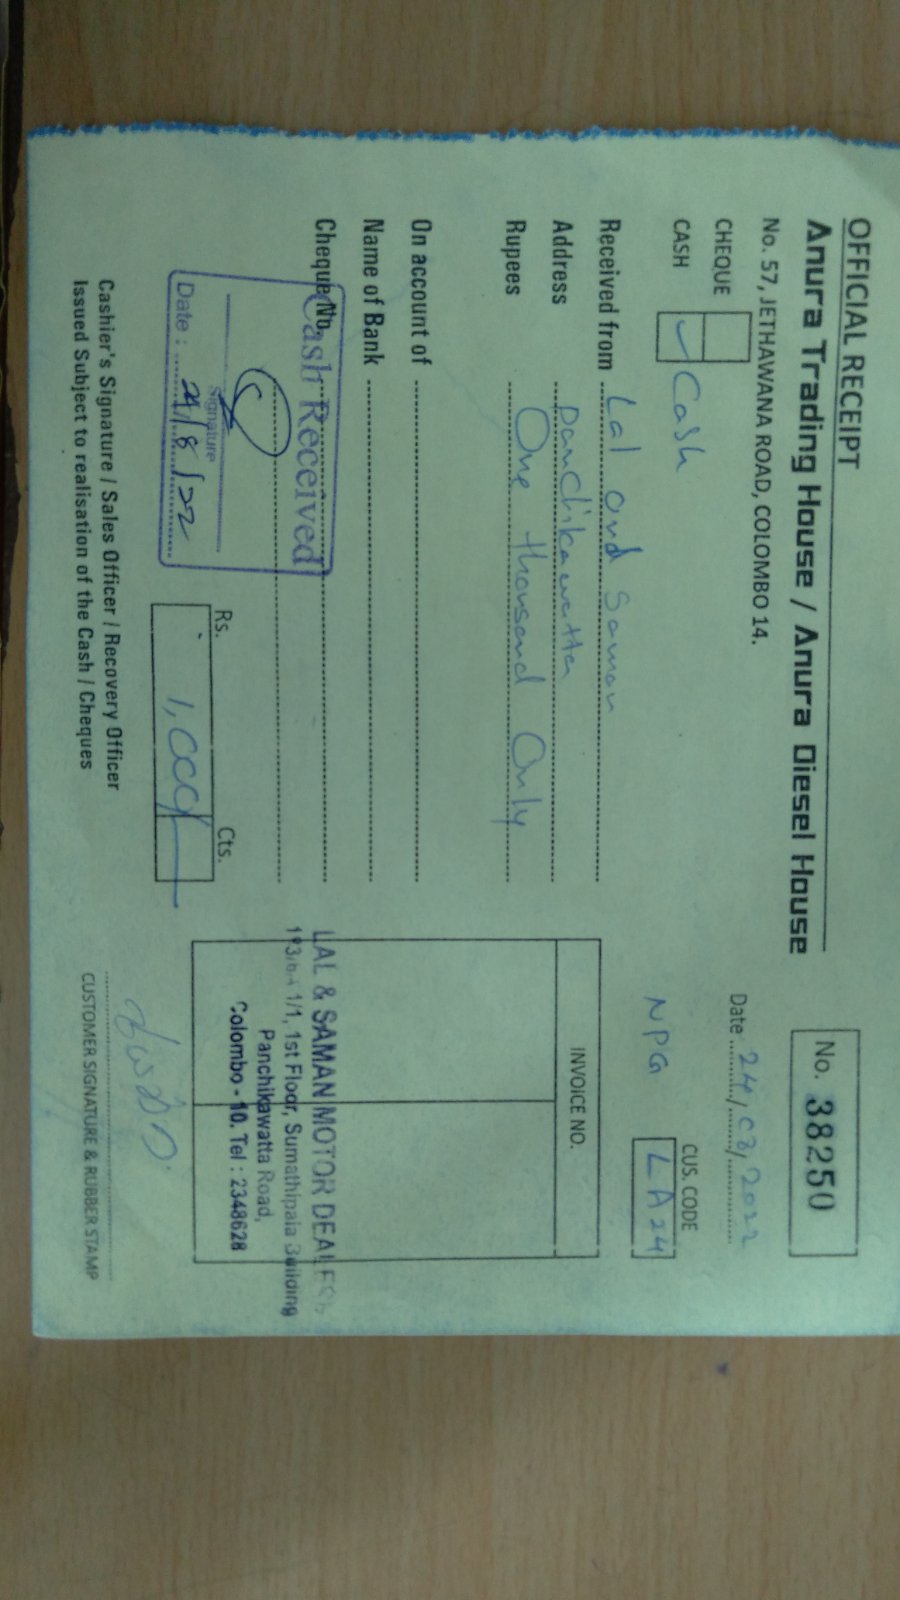 OFFICIAL RECEIPT
Anura Trading House / Anura Diesel House
No. 57, JETHAWANA ROAD, COLOMBO 14.
No. 38250
Date 24/08/2022
CHEQUE
CASH ✓ Cash
NPG
CUS. CODE
LA24
Received from Lal and Saman
Address Panchikawatta
Rupees One thousand Only
INVOICE NO.
On account of
Name of Bank
Cheque No.
Cash Received
Signature
Date : 24/8/22
LAL & SAMAN MOTOR DEALERS
1/1, 1st Floor, Sumathipala Building
Panchikawatta Road,
Colombo - 10. Tel : 2348628
Rs. Cts.
1,000/-
Cashier's Signature / Sales Officer / Recovery Officer
Issued Subject to realisation of the Cash / Cheques
CUSTOMER SIGNATURE & RUBBER STAMP